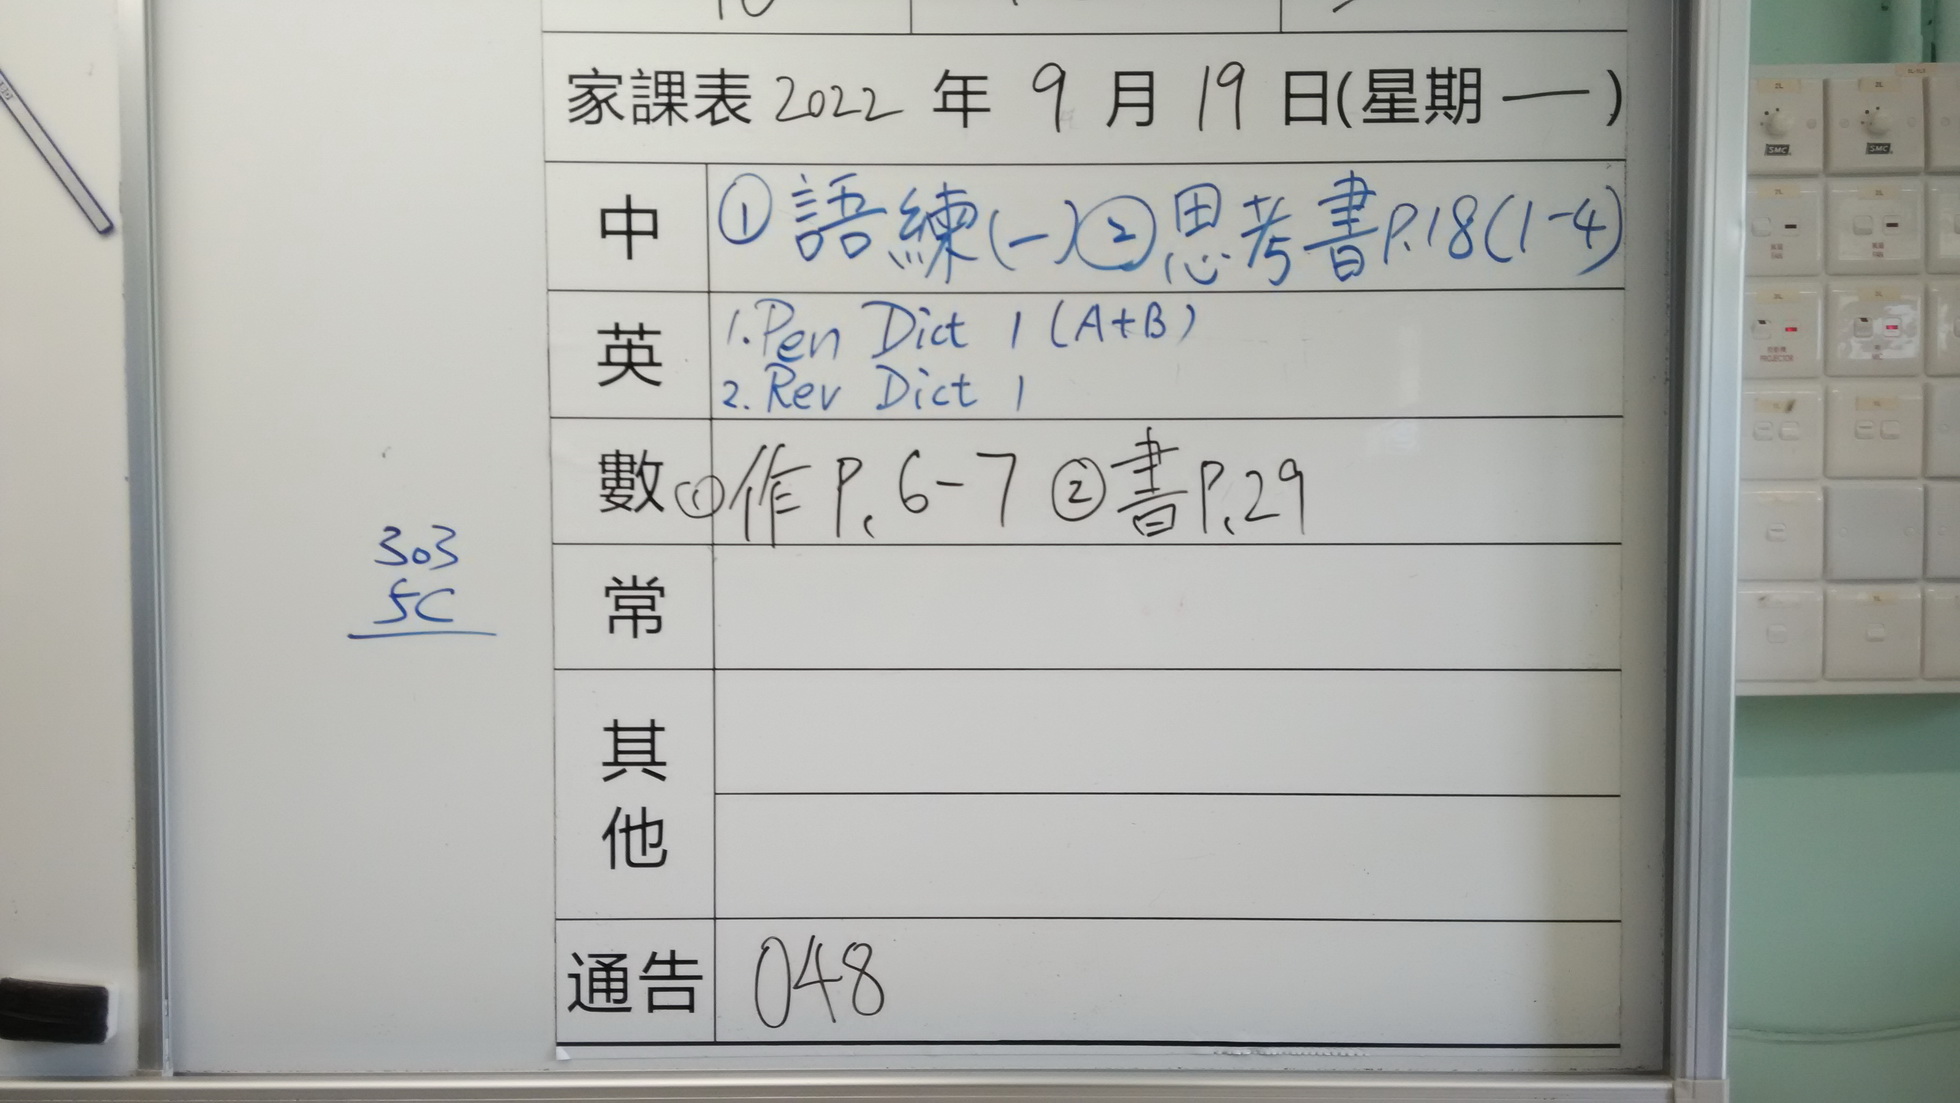 家課表 2022 年 9 月 19 日(星期一)
中 ① 語練(一) ② 思考書 P.18 (1-4)
英 1. Pen Dict 1 (A+B)
2. Rev Dict 1
數 ① 作 P. 6-7 ② 書 P.29
303
5C
常
其他
通告 048
SMC
SMC
PROJECTOR